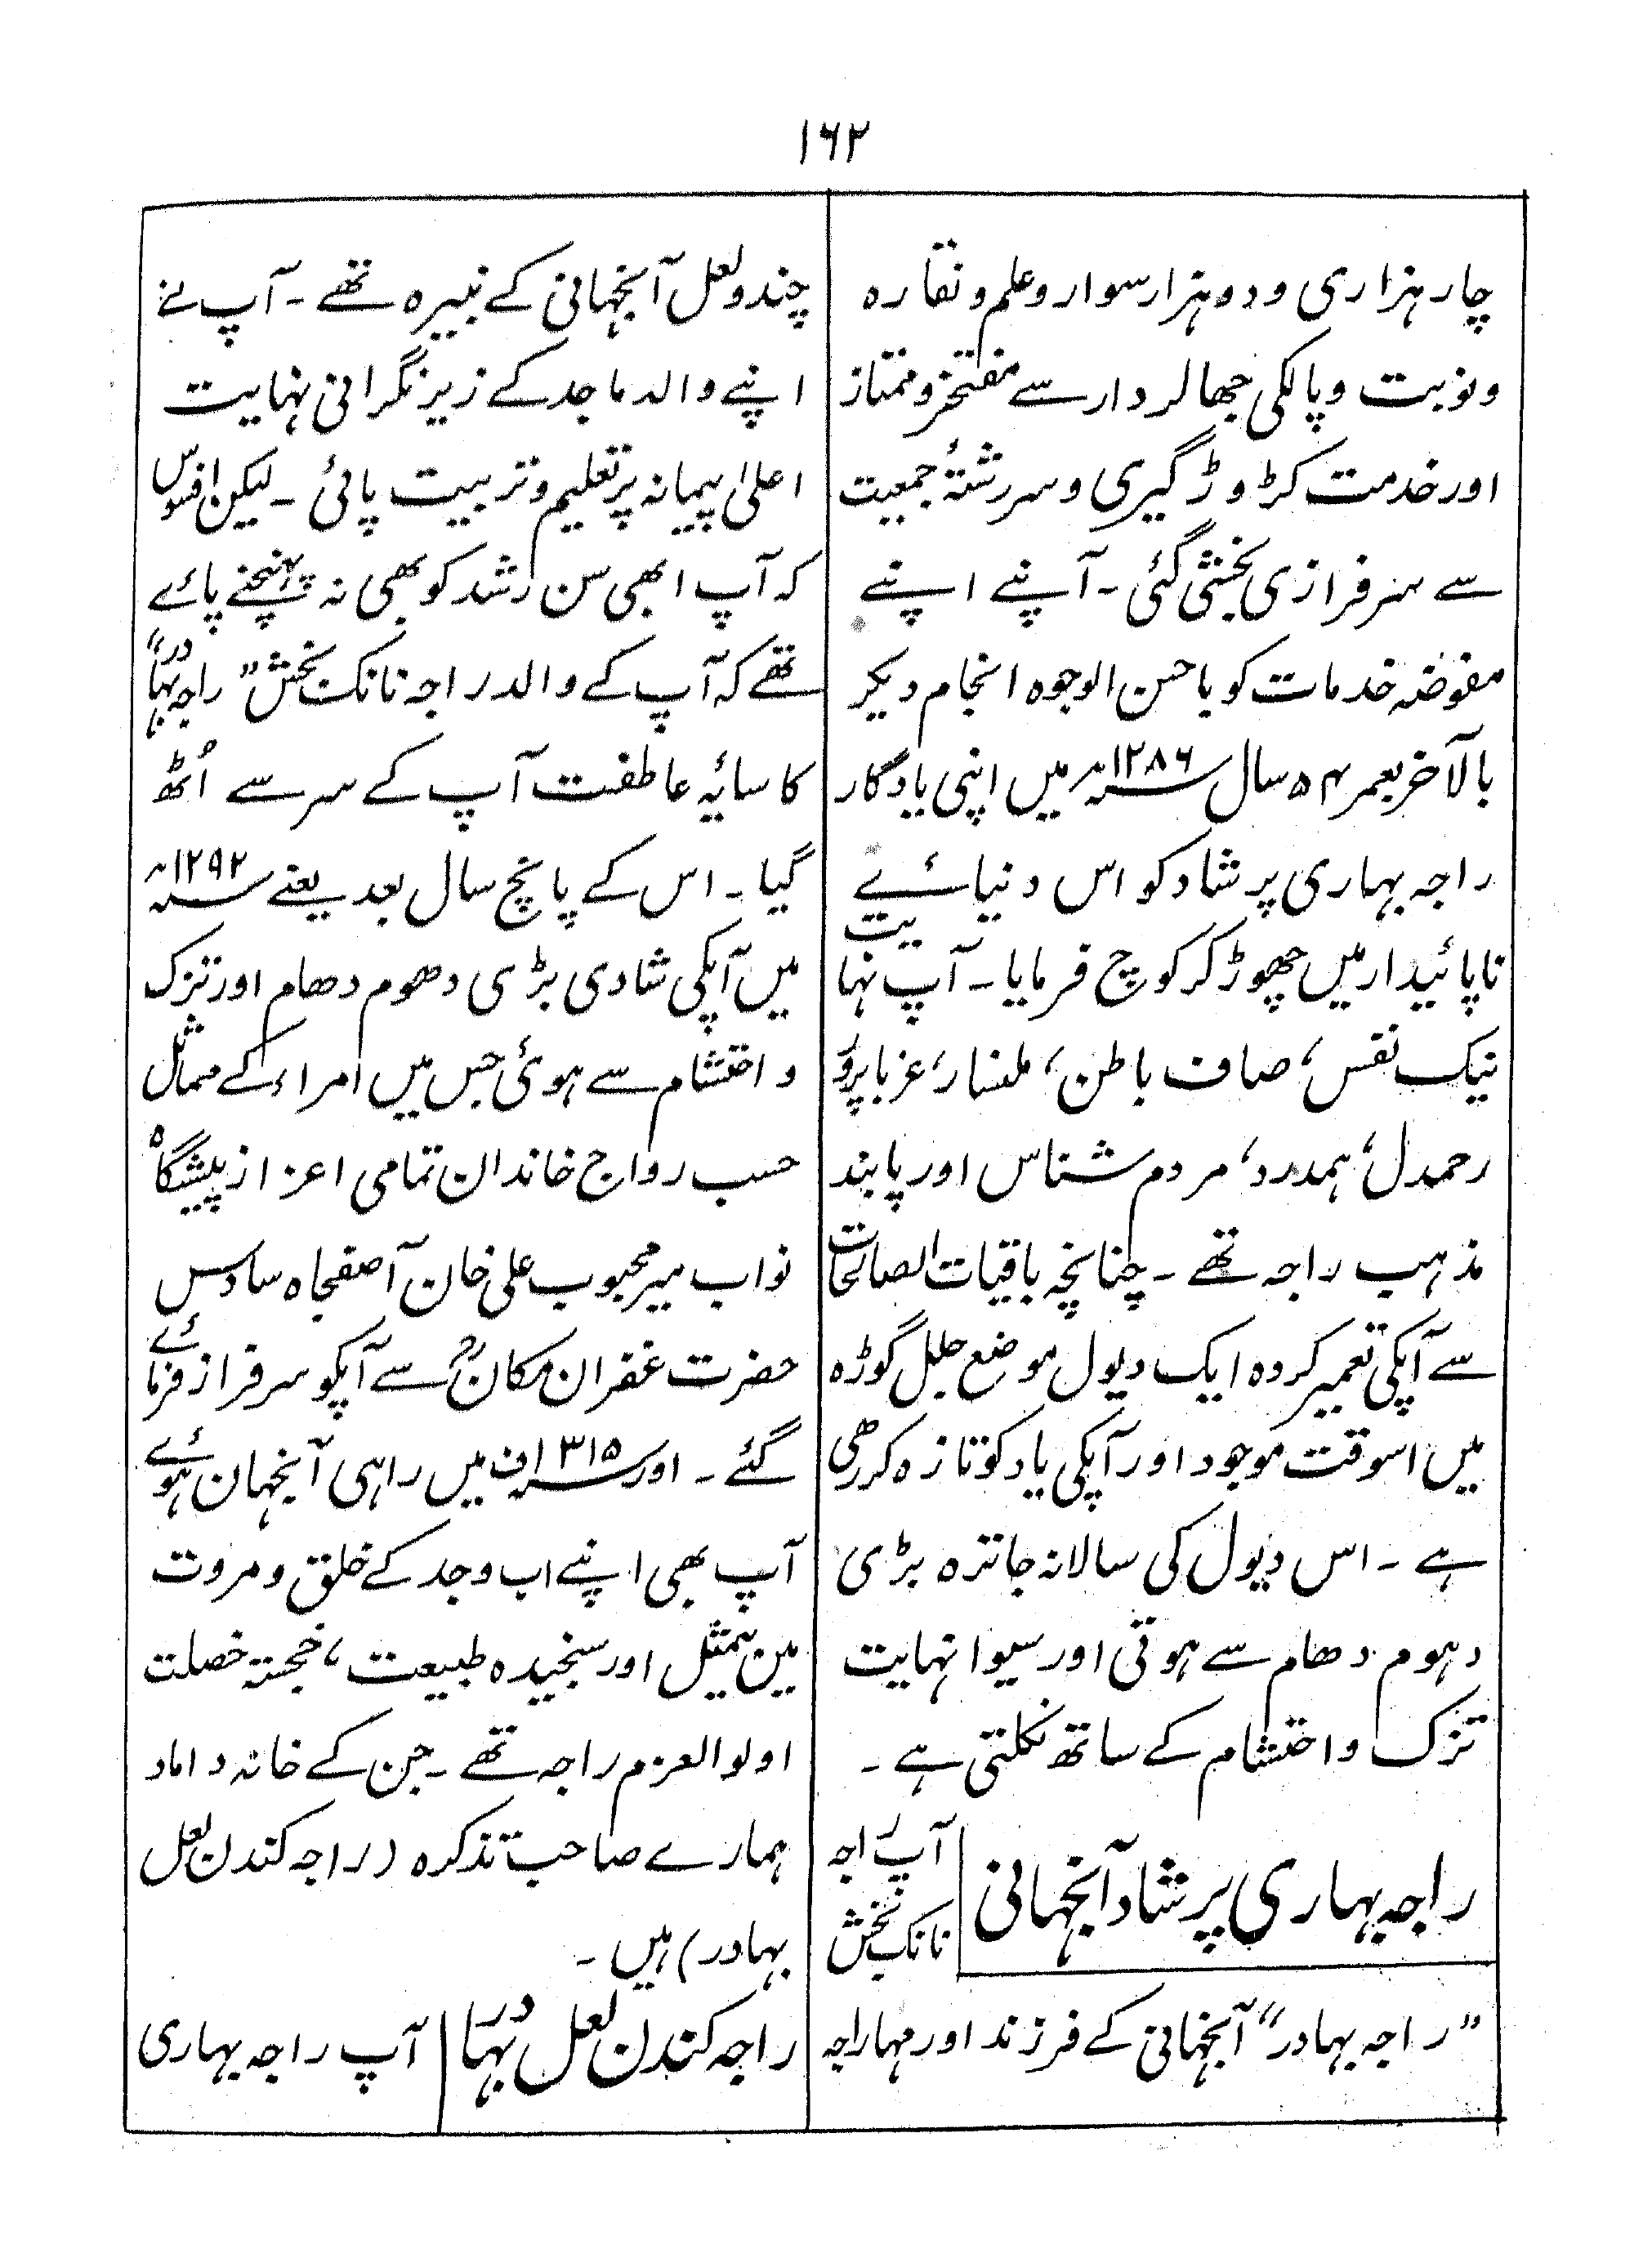 ۱۶۲
چار ہزاری و دو ہزار سوار و علم و نقارہ
و نوبت و پالکی جھالر دار سے مفتخر و ممتاز
اور خدمت کڑوڑ گیری و سررشتۂ جمعیت
سے سرفرازی بخشی گئی ۔ آپنے اپنے
مفوضہ خدمات کو باحسن الوجوہ انجام دیکر
بالآخر بعمر ۵۴ سال ۱۲۸۶؁ھ میں اپنی یادگار
راجہ بہاری پرشاد کو اس دنیائے
ناپائیدار میں چھوڑ کر کوچ فرمایا ۔ آپ نہایت
نیک نفس، صاف باطن، ملنسار، غربا پرور
رحمدل، ہمدرد، مردم شناس اور پابند
مذہب راجہ تھے ۔ چنانچہ باقیات الصالحات
سے آپکی تعمیر کردہ ایک دیول موضع جلل گوڑہ
میں اسوقت موجود اور آپکی یاد کو تازہ کر رہی
ہے ۔ اس دیول کی سالانہ جاترہ بڑی
دہوم دھام سے ہوتی اور سیوا نہایت
تزک و احتشام کے ساتھ نکلتی ہے ۔
راجہ بہاری پرشاد آنجہانی
آپ راجہ
نانک بخش
”راجہ بہادر“ آنجہانی کے فرزند اور مہاراجہ
چندو لعل آنجہانی کے نبیرہ تھے ۔ آپ نے
اپنے والد ماجد کے زیر نگرانی نہایت
اعلیٰ پیمانہ پر تعلیم و تربیت پائی ۔ لیکن افسوس
کہ آپ ابھی سن رشد کو بھی نہ پہنچنے پائے
تھے کہ آپ کے والد راجہ نانک بخش ”راجہ بہادر“
کا سایۂ عاطفت آپ کے سر سے اُٹھ
گیا ۔ اس کے پانچ سال بعد یعنے ۱۲۹۲؁ھ
میں آپکی شادی بڑی دھوم دھام اور تزک
و احتشام سے ہوئی جس میں امراء کے مماثل
حسب رواج خاندان تمامی اعزاز پیشگاہ
نواب میر محبوب علی خان آصفجاہ سادس
حضرت غفران مکانؒ سے آپکو سرفراز فرمائے
گئے ۔ اور ۱۳۱۵؁ف میں راہی آنجہان ہوئے
آپ بھی اپنے اب و جد کے خلق و مروت
مین بیمثیل اور سنجیدہ طبیعت، خجستہ خصلت
اولوالعزم راجہ تھے ۔ جن کے خانہ داماد
ہمارے صاحب تذکرہ (راجہ کندن لعل
بہادر) ہیں ۔
راجہ کندن لعل بہادر
آپ راجہ بہاری